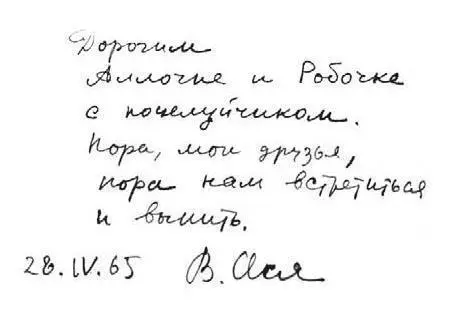 Дорогим
Аллочке и Робочке
с поцелуйчиком.
Пора, мои друзья,
пора нам встретиться
и выпить.
28.IV.65 В. Ася